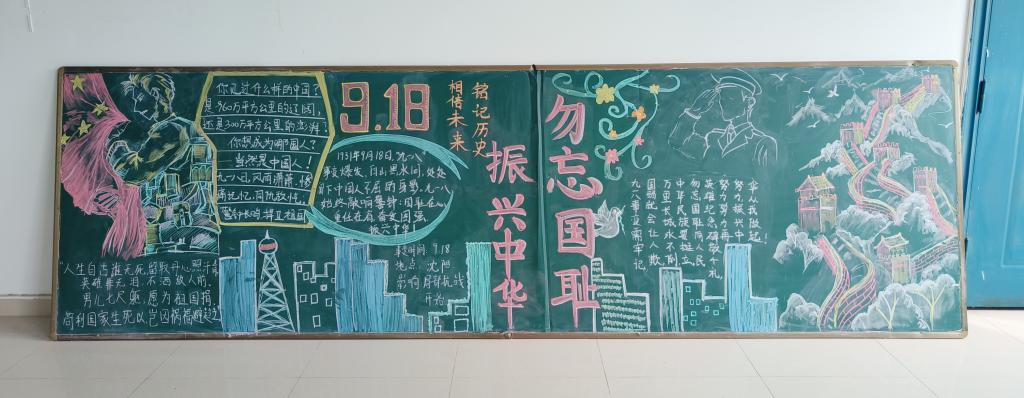 你见过什么样的中国？
是960万平方公里的辽阔，
还是300万平方公里的澎湃
你想成为哪国人？
当然是中国人！
九一八日，风雨潇萧，
铭记忆，同抗敌忾，
警钟长鸣 捍卫祖国
9.18
铭记历史
相传未来
1931年9月18日，九一八
事变爆发，白山黑水间，处处
留下中国人不屈的身影，九一八
始终敲响警钟：国耻在心
重任在肩 奋发图强
振兴中华
时间：9.18
地点：沈阳
影响：局部抗战
开始
"人生自古谁无死，留取丹心照汗青
英雄非无泪，不洒敌人前，
男儿七尺躯，愿为祖国捐，
苟利国家生死以 岂因祸福避趋之
振兴中华
勿忘国耻
拿从我做起！
努力振兴中华
努力努力再
英雄纪念碑敬个礼
勿忘国耻向人民
中华民族屹立
万里长城永不倒
国弱就会让人欺
九一八事变需牢记